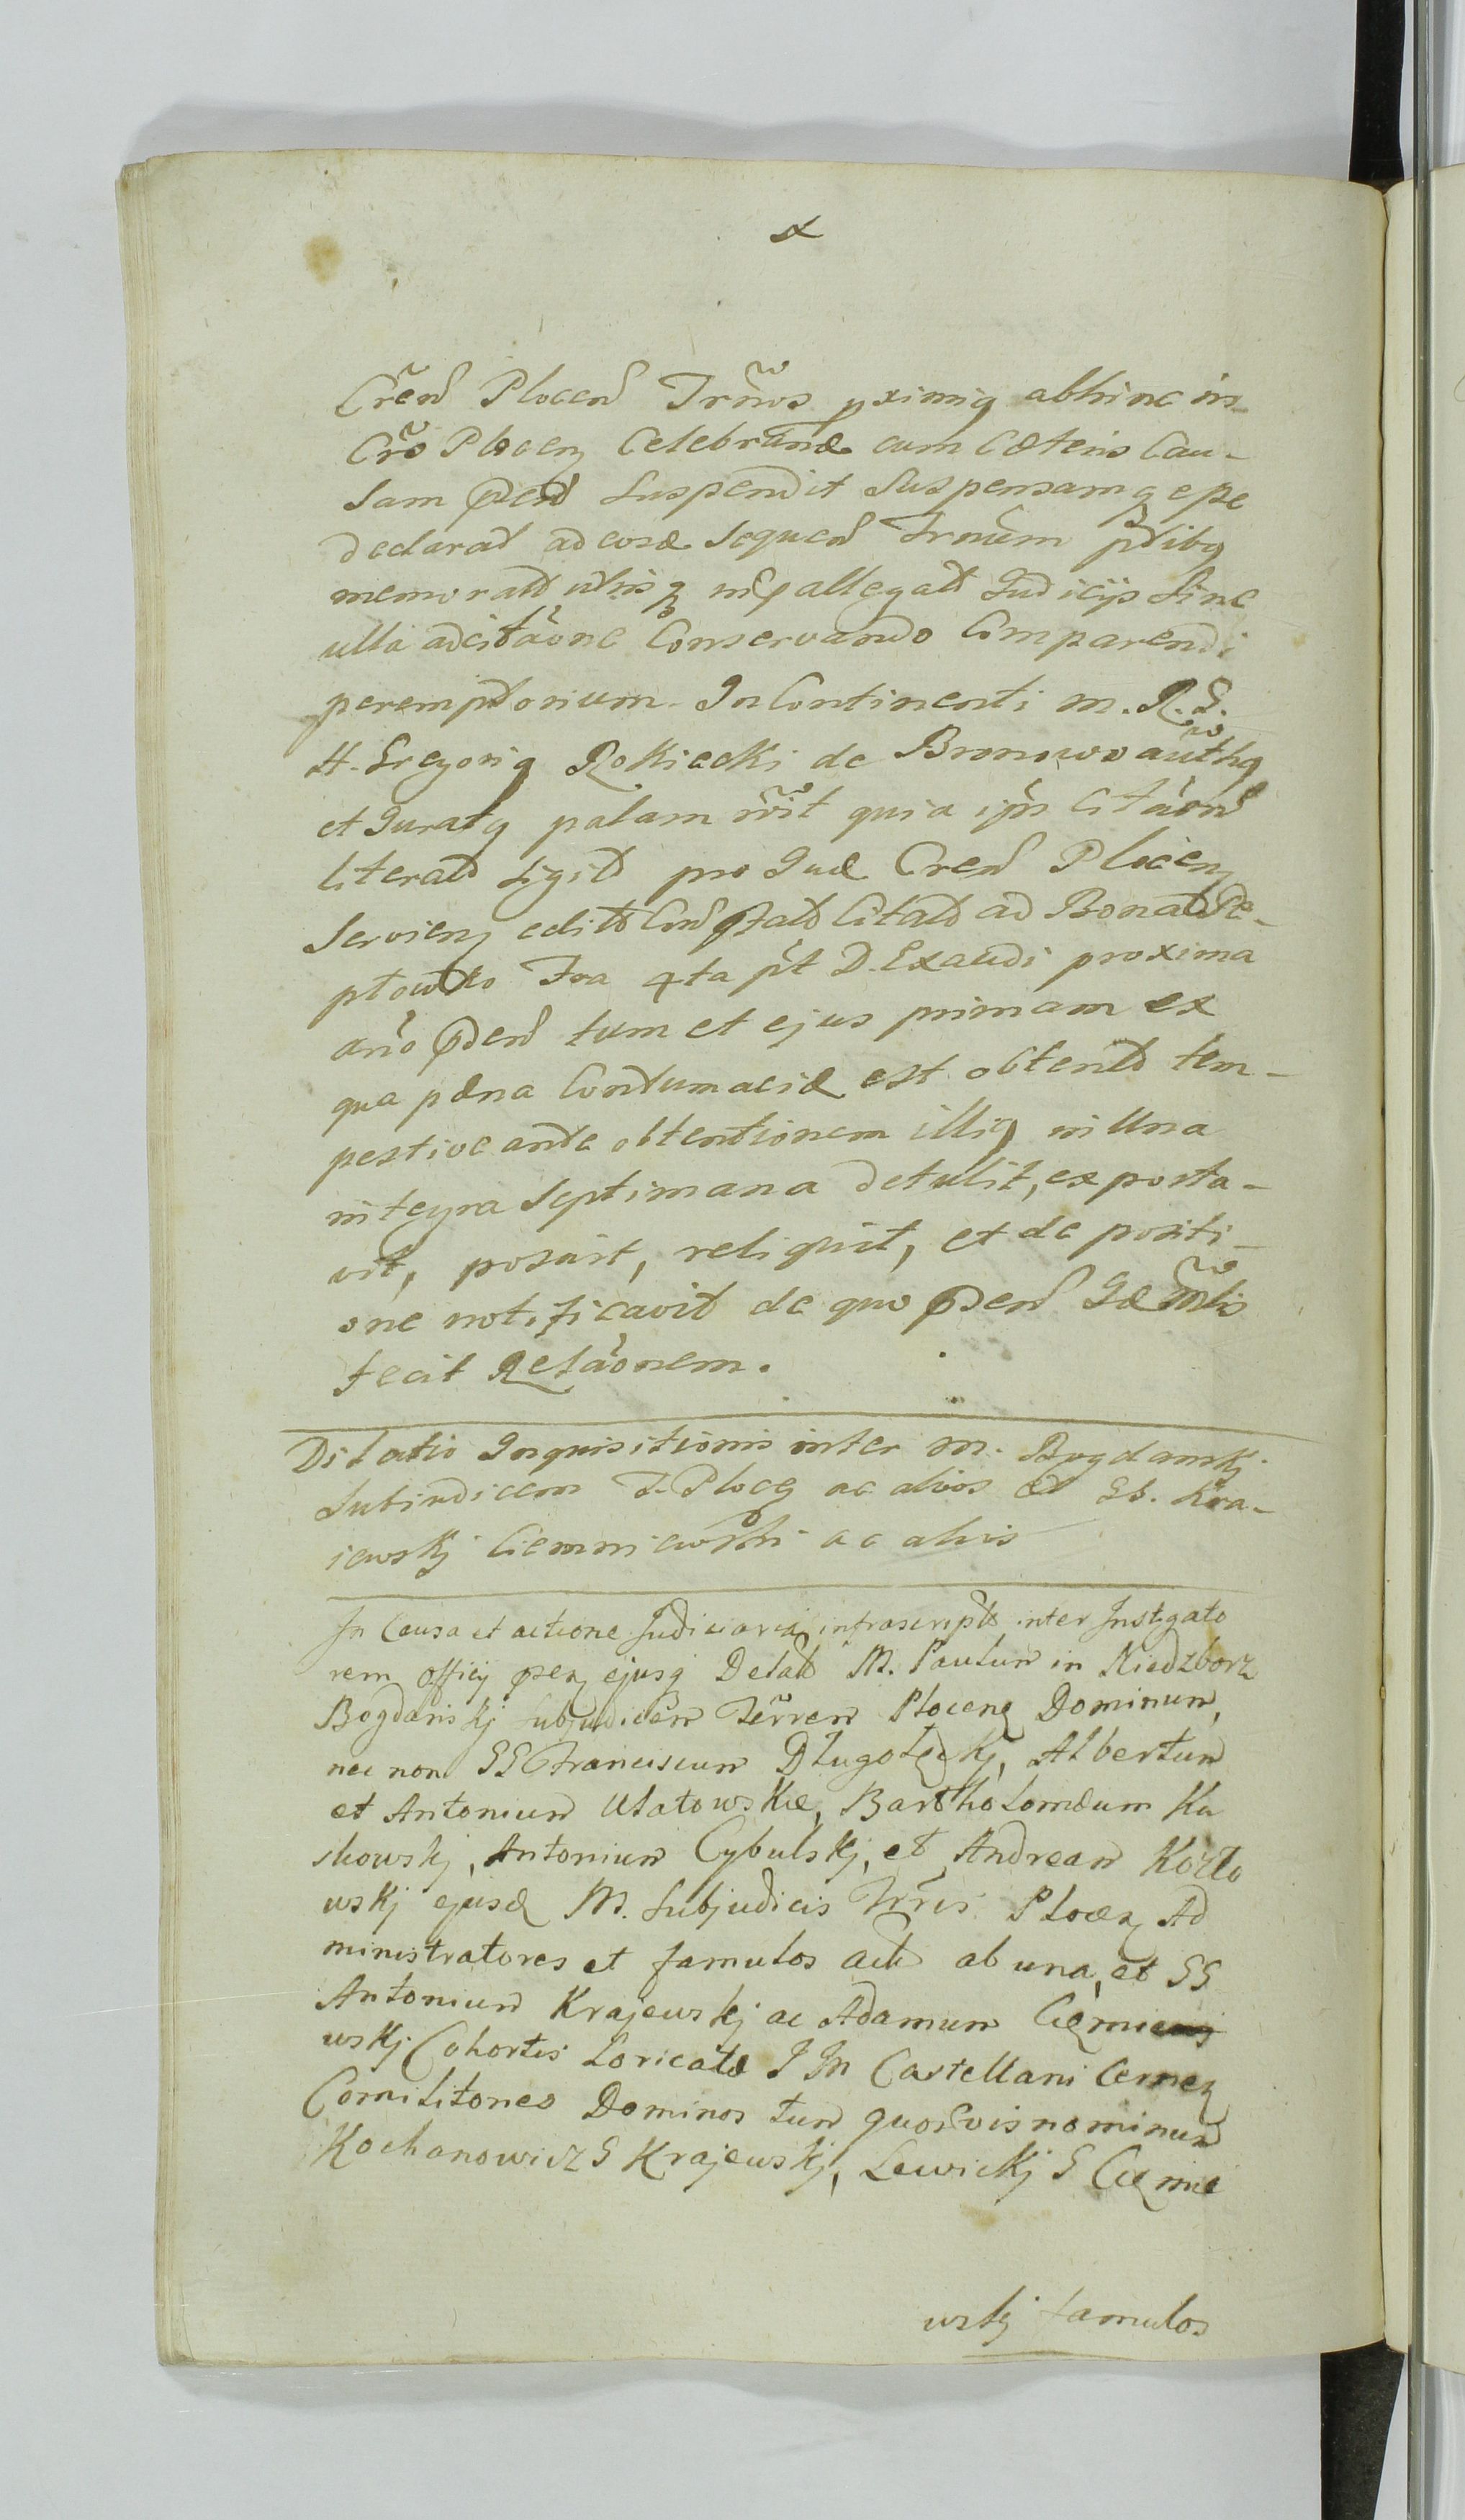 Cren Plocen Trnos pximiq abhinc in
Cro Plocen Celebrand cum Cæteris Cau-
sam pten Suspendit Suspensamq epe
declarat ad eosd Sequen Trnum ptibq
memorat utrisq allegat Judicijs Sine
ulla adcitaone Conservando Comparendi
peremptorium. In Continenti M. R. S.
H. Gregoriq Rokicki de Bronowo authq
et Juratq palam quia ipn Citaon
literat Sigil pro Jud Cren Plocen
Servien edit Citat ad Bona
Fra 4ta pt D. Exaudi proxima
ano pden tum et ejus primam ex
qua pæna Contumaciæ est obtent tem-
pestive ante obtentionem illiq in Una
integra Septimana detulit, exporta-
vit, posuit, reliquit, et de positi-
one notificavit de quo pden Jd Mlis
fecit Relaonem.
Dilatio Inquisitionis inter M. Bogdanskj
Subiudicem T. Plocen ac alios et GG. Kra-
iewskj Ciemniewski ac alios
In Causa et actione Judiciaria infrascript inter Instigato
rem Officij pen ejusq Delat M. Paulum in Niedzborz
Bogdanskj Subjudicem Terren Plocenq Dominum,
nec non GG Franciscum Dlugoleckj, Albertum
et Antonium Ulatowskie, Bartholomæum Ka
skowskj, Antonium Cybulskj, et Andream Kozlo
wskj ejusd M. Subjudicis Trris Plocen Ad
ministratores et famulos act ab una, et GG
Antonium Krajewskj ac Adamum Ciemnie
wskj Cohortis Loricatæ I M Castellani Cernen
Comilitones Dominos tum quosvis nominum
Kochanowicz G Krajewskj, Lewickj G Ciemnie
wskj famulos